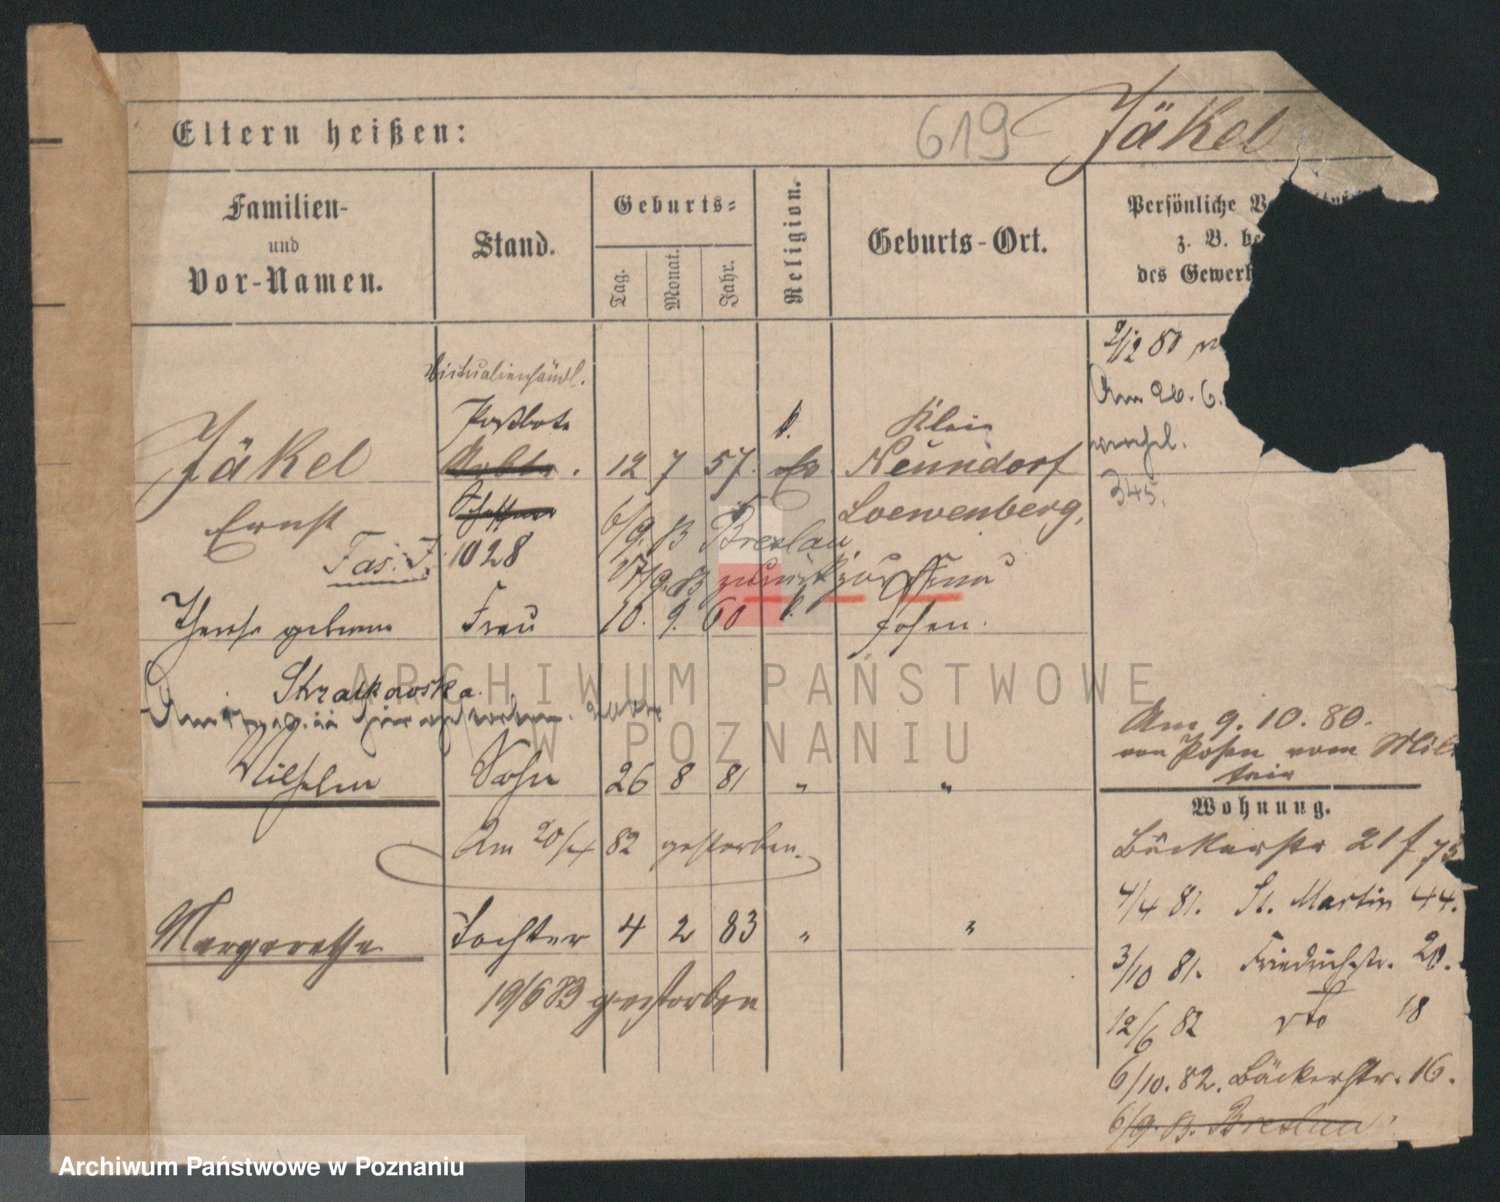 Eltern heißen:
619 Jäkel
Familien-
und
Vor-Namen.
Stand.
Geburts-
Tag.
Monat.
Jahr.
Religion.
Geburts-Ort.
Persönliche
z. B.
des
2/12 80
Am 26. 6.
345.
Victualienhändl.
Postbote
Jäkel
12 7 57. ev. Klein
Neundorf
Ernst
Loewenberg,
Fas. J.
1028
6/9. 83 Breslau
17/9. 83 zurück zur Frau
Therese geborene Frau 10. 9. 60 k. Posen.
Strackowska
Wilhelm Sohn 26 8 81 " "
Am 20/4 82 gestorben.
Margarethe Tochter 4 2 83 " "
19/6 83 gestorben
Am 9. 10. 80.
von Posen vom Mili
tair
Wohnung.
Bäckerstr 21
4/4 81. St. Martin 44.
3/10 81. Friedrichstr. 20.
12/6 82 dto 18
6/10. 82. Bäckerstr. 16.
6/9. 83. Breslau
ARCHIWUM PAŃSTWOWE
W POZNANIU
Archiwum Państwowe w Poznaniu